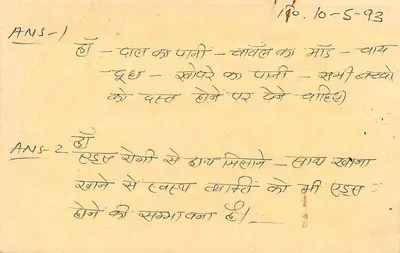 10-5-93
ANS-1
हाँ - दाल का पानी - चाँवल का माँड - चाय
दूध - खोपरे का पानी - सभी बच्चो
को दस्त होने पर देने चाहिए)
ANS-2 हाँ
एड्स रोगी से हाथ मिलाने - साथ खाना
खाने से स्वस्थ व्यक्ति को भी एड्स
होने की सम्भावना है।